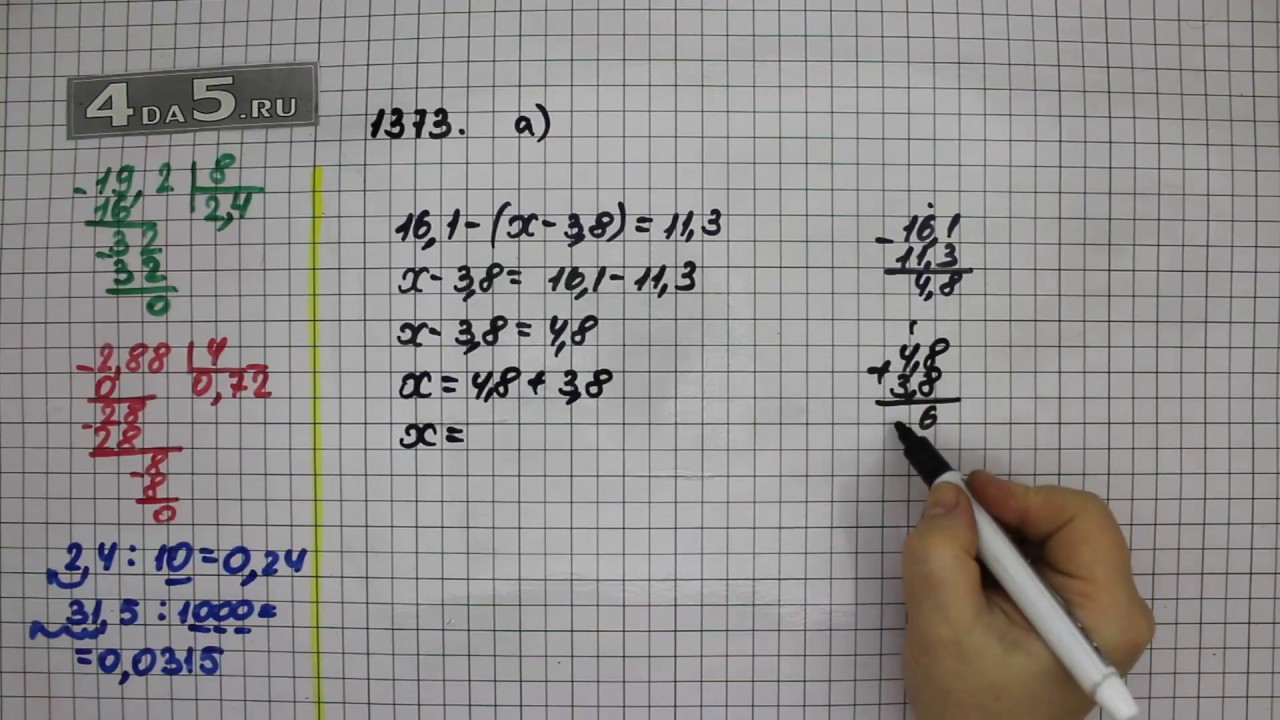 4DA5.RU
1373. а)
- 19,2 | 8
16 | 2,4
- 32
32
0
- 2,88 | 4
0 | 0,72
- 28
28
- 8
8
0
2,4 : 10 = 0,24
31,5 : 1000 =
= 0,0315
16,1 - (x - 3,8) = 11,3
x - 3,8 = 16,1 - 11,3
x - 3,8 = 4,8
x = 4,8 + 3,8
x =
- 16,1
11,3
4,8
1
+ 4,8
3,8
6